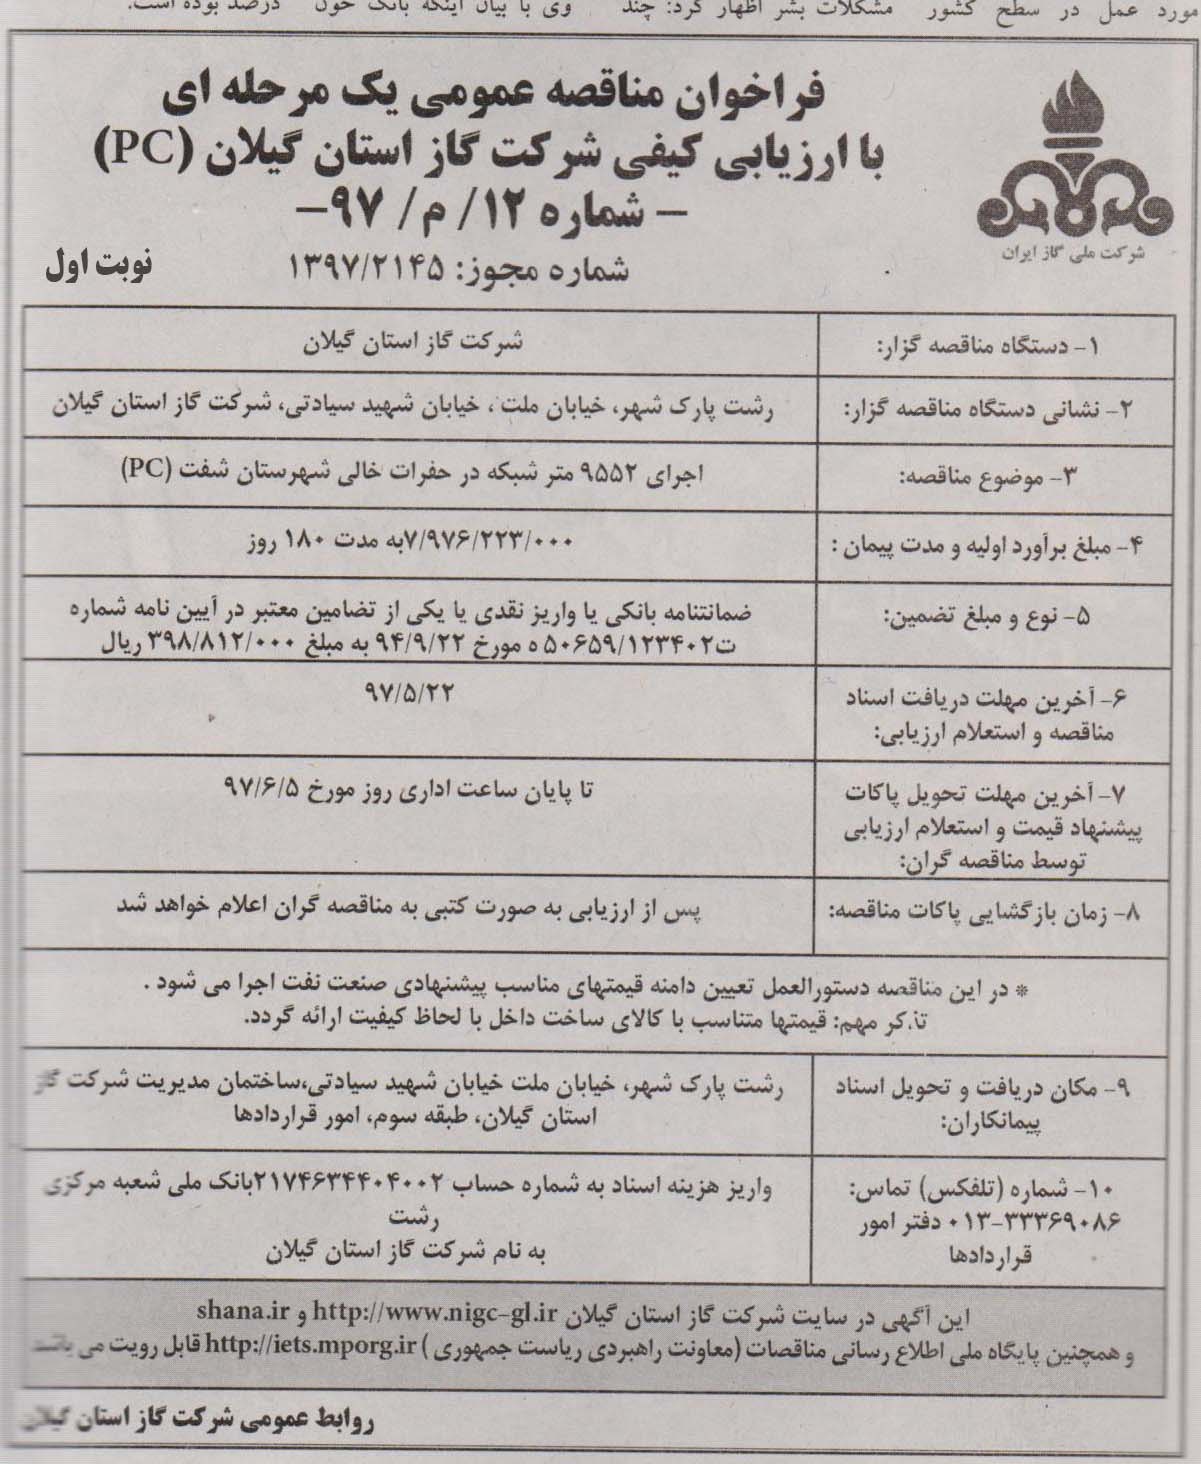 مورد عمل در سطح کشور مشکلات بشر اظهار کرد: چند وی با بیان اینکه بانک خون درصد بوده است.
فراخوان مناقصه عمومی یک مرحله ای
با ارزیابی کیفی شرکت گاز استان گیلان (PC)
– شماره ۱۲/ م/ ۹۷–
شماره مجوز: ۱۳۹۷/۲۱۴۵
نوبت اول
شرکت ملی گاز ایران
۱- دستگاه مناقصه گزار:
شرکت گاز استان گیلان
۲- نشانی دستگاه مناقصه گزار:
رشت پارک شهر، خیابان ملت ، خیابان شهید سیادتی، شرکت گاز استان گیلان
۳- موضوع مناقصه:
اجرای ۹۵۵۲ متر شبکه در حفرات خالی شهرستان شفت (PC)
۴- مبلغ برآورد اولیه و مدت پیمان :
۷/۹۷۶/۲۲۳/۰۰۰به مدت ۱۸۰ روز
۵- نوع و مبلغ تضمین:
ضمانتنامه بانکی یا واریز نقدی یا یکی از تضامین معتبر در آیین نامه شماره
۱۲۳۴۰۲/ت۵۰۶۵۹ ه مورخ ۹۴/۹/۲۲ به مبلغ ۳۹۸/۸۱۲/۰۰۰ ریال
۶- آخرین مهلت دریافت اسناد
مناقصه و استعلام ارزیابی:
۹۷/۵/۲۲
۷- آخرین مهلت تحویل پاکات
پیشنهاد قیمت و استعلام ارزیابی
توسط مناقصه گران:
تا پایان ساعت اداری روز مورخ ۹۷/۶/۵
۸- زمان بازگشایی پاکات مناقصه:
پس از ارزیابی به صورت کتبی به مناقصه گران اعلام خواهد شد
* در این مناقصه دستورالعمل تعیین دامنه قیمتهای مناسب پیشنهادی صنعت نفت اجرا می شود .
تذکر مهم: قیمتها متناسب با کالای ساخت داخل با لحاظ کیفیت ارائه گردد.
۹- مکان دریافت و تحویل اسناد
پیمانکاران:
رشت پارک شهر، خیابان ملت خیابان شهید سیادتی،ساختمان مدیریت شرکت گاز
استان گیلان، طبقه سوم، امور قراردادها
۱۰- شماره (تلفکس) تماس:
۰۱۳-۳۳۳۶۹۰۸۶ دفتر امور
قراردادها
واریز هزینه اسناد به شماره حساب ۲۱۷۴۶۳۴۴۰۴۰۰۲بانک ملی شعبه مرکزی
رشت
به نام شرکت گاز استان گیلان
این آگهی در سایت شرکت گاز استان گیلان http://www.nigc-gl.ir و shana.ir
و همچنین پایگاه ملی اطلاع رسانی مناقصات (معاونت راهبردی ریاست جمهوری ) http://iets.mporg.ir قابل رویت می باشد
روابط عمومی شرکت گاز استان گیلان